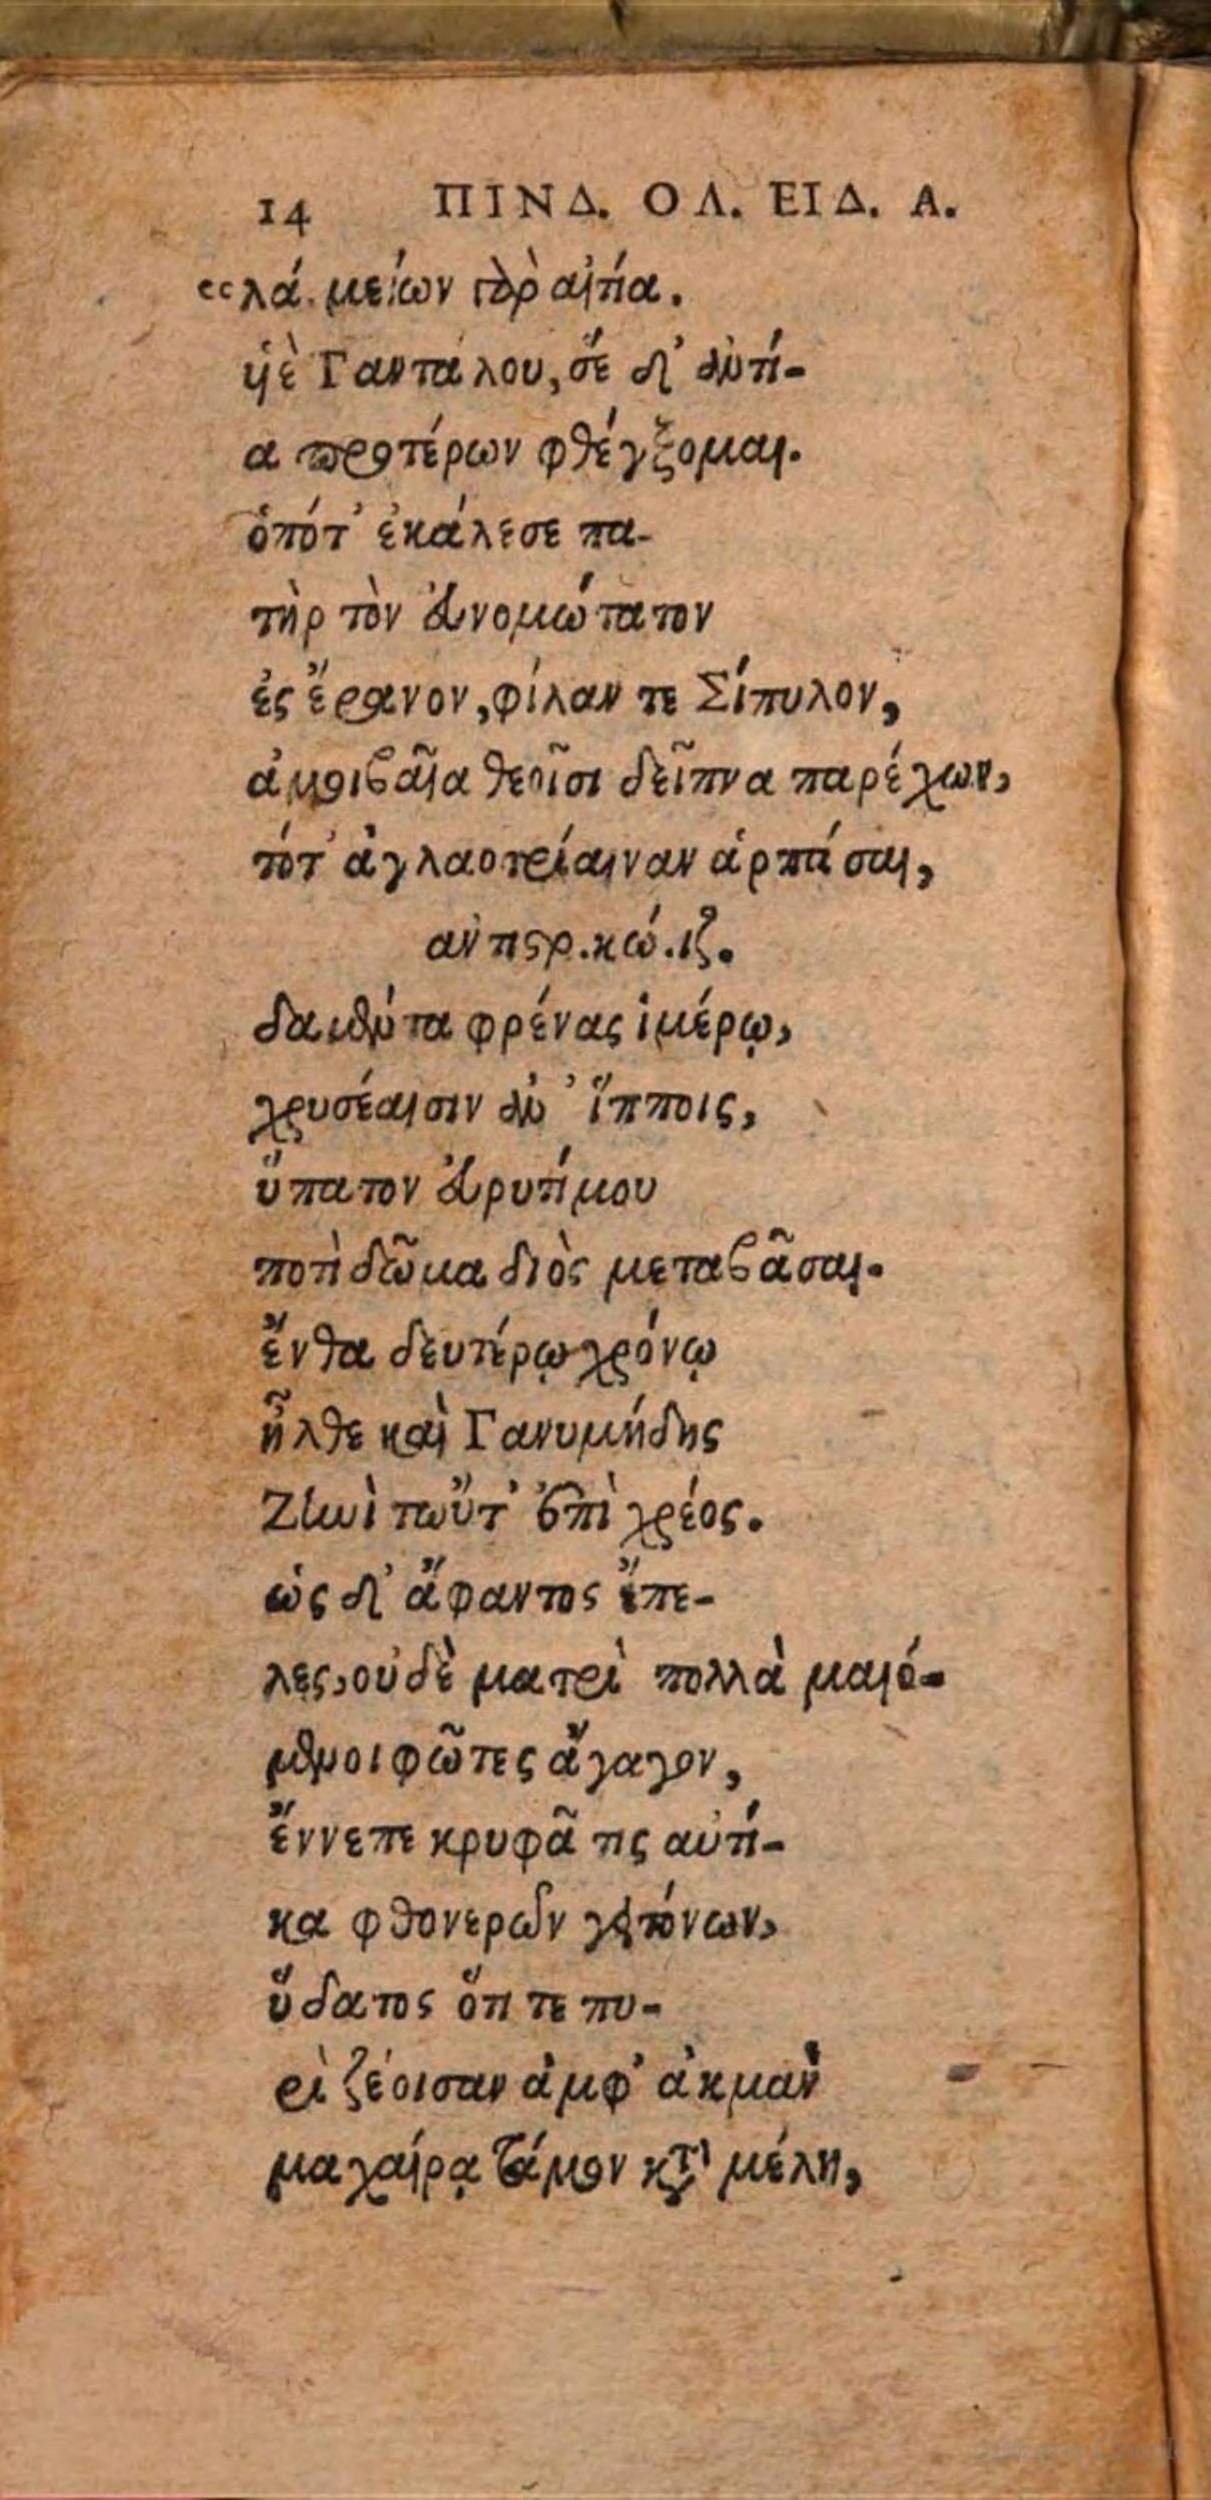 14 ΠΙΝΔ. ΟΛ. ΕΙΔ. Α.
“λά. μείων γὰρ αἰτία.
ὑὲ Ταντάλου, σὲ δ' ἀντί-
α προτέρων φθέγξομαι.
ὁπότ' ἐκάλεσε πα-
τὴρ τὸν εὐνομώτατον
ἐς ἔρανον, φίλαν τε Σίπυλον,
ἀμοιβαῖα θεοῖσι δεῖπνα παρέχων,
τότ' ἀγλαοτρίαιναν ἁρπάσαι,
ἀντιστρ. κώ. ιζ.
δαμέντα φρένας ἱμέρῳ,
χρυσέαισιν ἀν' ἵπποις,
ὕπατον εὐρυτίμου
ποτὶ δῶμα διὸς μεταβᾶσαι.
ἔνθα δευτέρῳ χρόνῳ
ἦλθε καὶ Γανυμήδης
Ζηνὶ τωὔτ' ἐπὶ χρέος.
ὡς δ' ἄφαντος ἔπε-
λες, οὐδὲ ματρὶ πολλὰ μαιό-
μενοι φῶτες ἄγαγον,
ἔννεπε κρυφᾶ τις αὐτί-
κα φθονερῶν γειτόνων,
ὕδατος ὅτι τε πυ-
ρὶ ζέοισαν ἀμφ' ἀκμὰν
μαχαίρᾳ τάμον κατὰ μέλη,